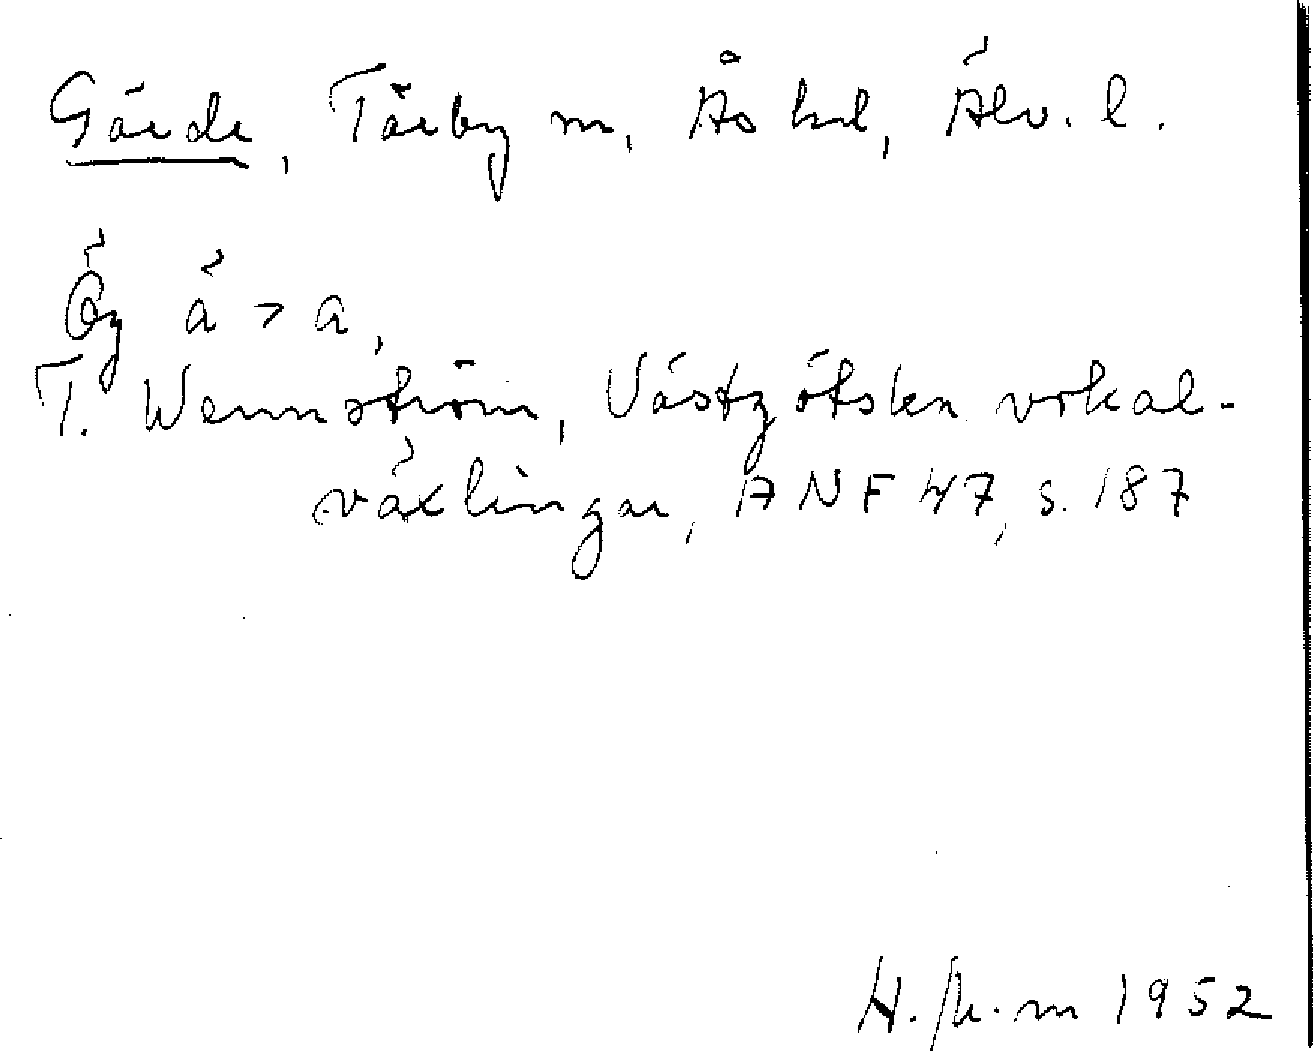 Gärde, Tärby sn, Ås hd, Älv. l.
Ög ä > a,
T. Wennström, Västgötska vokal-
växlingar, ANF 47, s. 187
1952